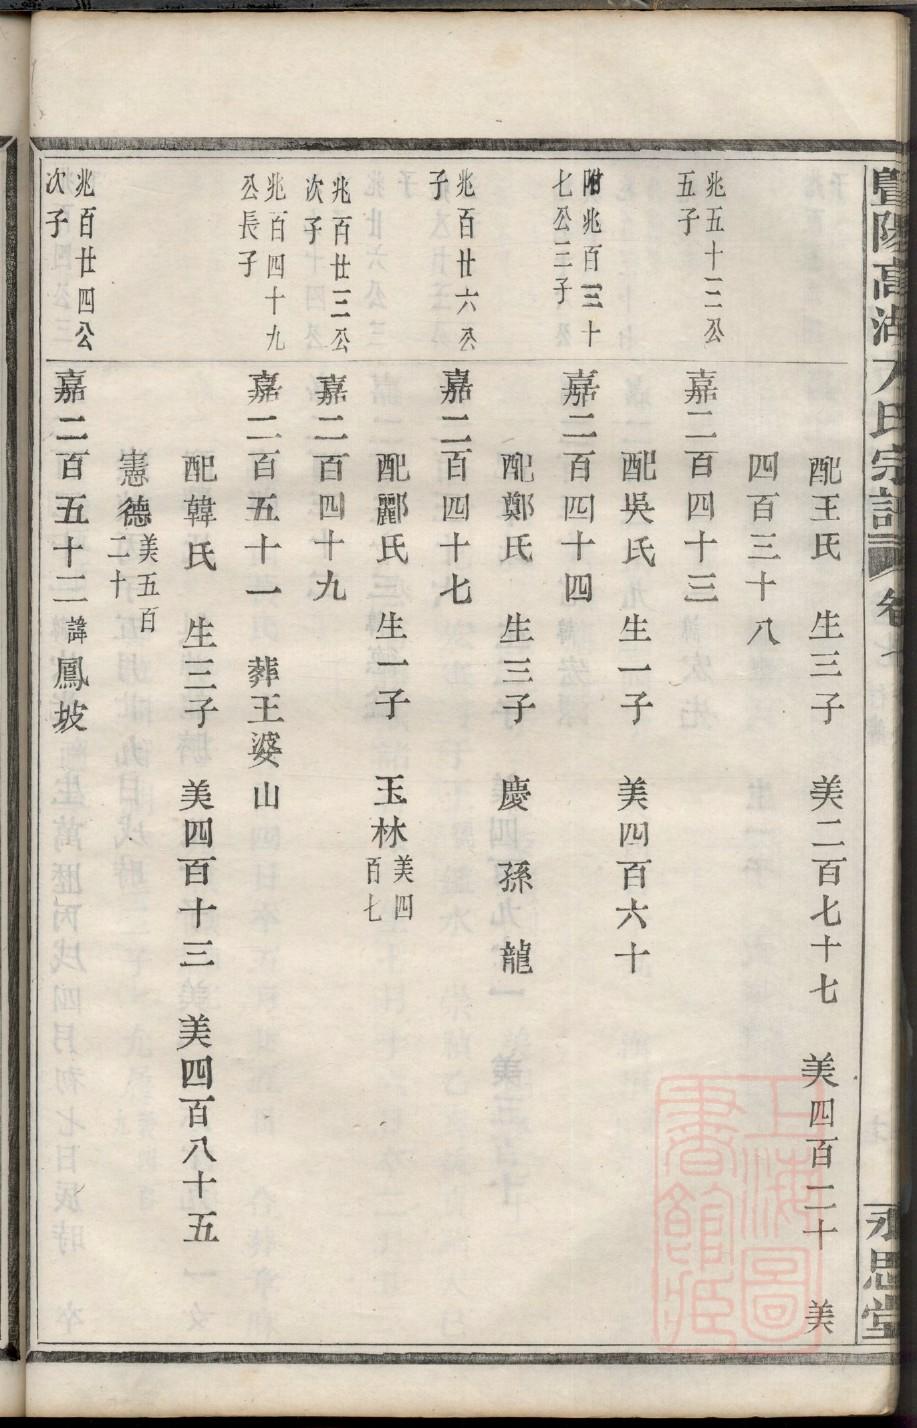 暨陽高湖方氏宗譜 卷七
永思堂
配王氏 生三子 美二百七十七 美四百二十 美
四百三十八
兆五十二公
五子
嘉二百四十三
配吳氏 生一子 美四百六十
附兆百三十
七公三子
嘉二百四十四
配鄭氏 生三子 慶 孫 龍
兆百廿六公
子
嘉二百四十七
配酈氏 生一子 玉林 美四
百七
兆百廿三公
次子
嘉二百四十九
兆百四十九
公長子
嘉二百五十一 葬王婆山
配韓氏 生三子 美四百十三 美四百八十五
憲德 美五百
二十
兆百廿四公
次子
嘉二百五十二 諱鳳坡
上海圖
書館藏